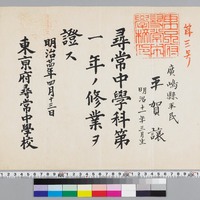 第三号
廣嶋縣平民
平賀譲
明治十一年三月生
尋常中學科第
一年ノ修業ヲ
證ス
明治廿四年四月十三日
東京府尋常中學校